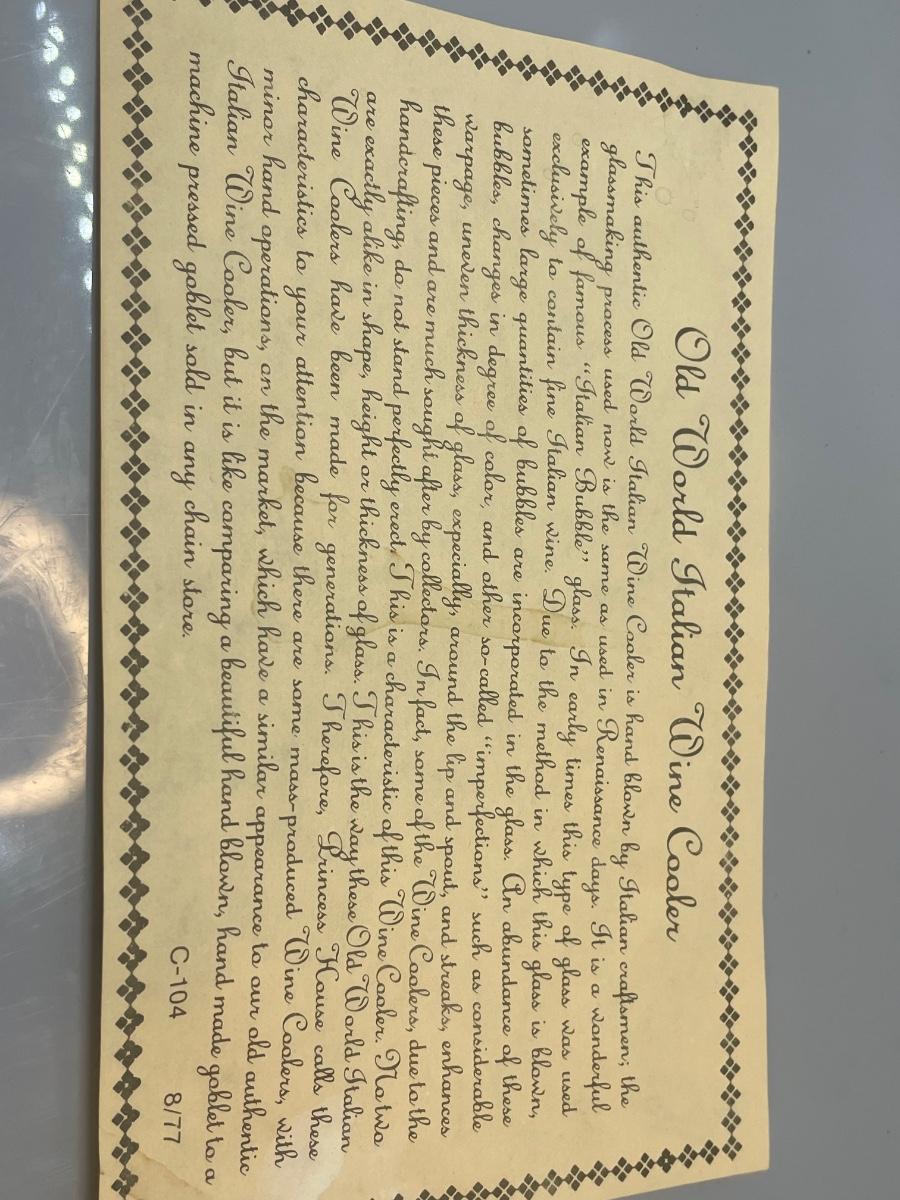 Old World Italian Wine Cooler
This authentic Old World Italian Wine Cooler is hand blown by Italian craftsmen; the
glassmaking process used now is the same as used in Renaissance days. It is a wonderful
example of famous "Italian Bubble" glass. In early times this type of glass was used
exclusively to contain fine Italian wine. Due to the method in which this glass is blown,
sometimes large quantities of bubbles are incorporated in the glass. An abundance of these
bubbles, changes in degree of color, and other so-called "imperfections" such as considerable
warpage, uneven thickness of glass, expecially, around the lip and spout, and streaks, enhances
these pieces and are much sought after by collectors. In fact, some of the Wine Coolers, due to the
handcrafting, do not stand perfectly erect. This is a characteristic of this Wine Cooler. No two
are exactly alike in shape, height or thickness of glass. This is the way these Old World Italian
Wine Coolers have been made for generations. Therefore, Princess House calls these
characteristics to your attention because there are some mass-produced Wine Coolers, with
minor hand operations, on the market, which have a similar appearance to our old authentic
Italian Wine Cooler, but it is like comparing a beautiful hand blown, hand made goblet to a
machine pressed goblet sold in any chain store.
C-104 8/77